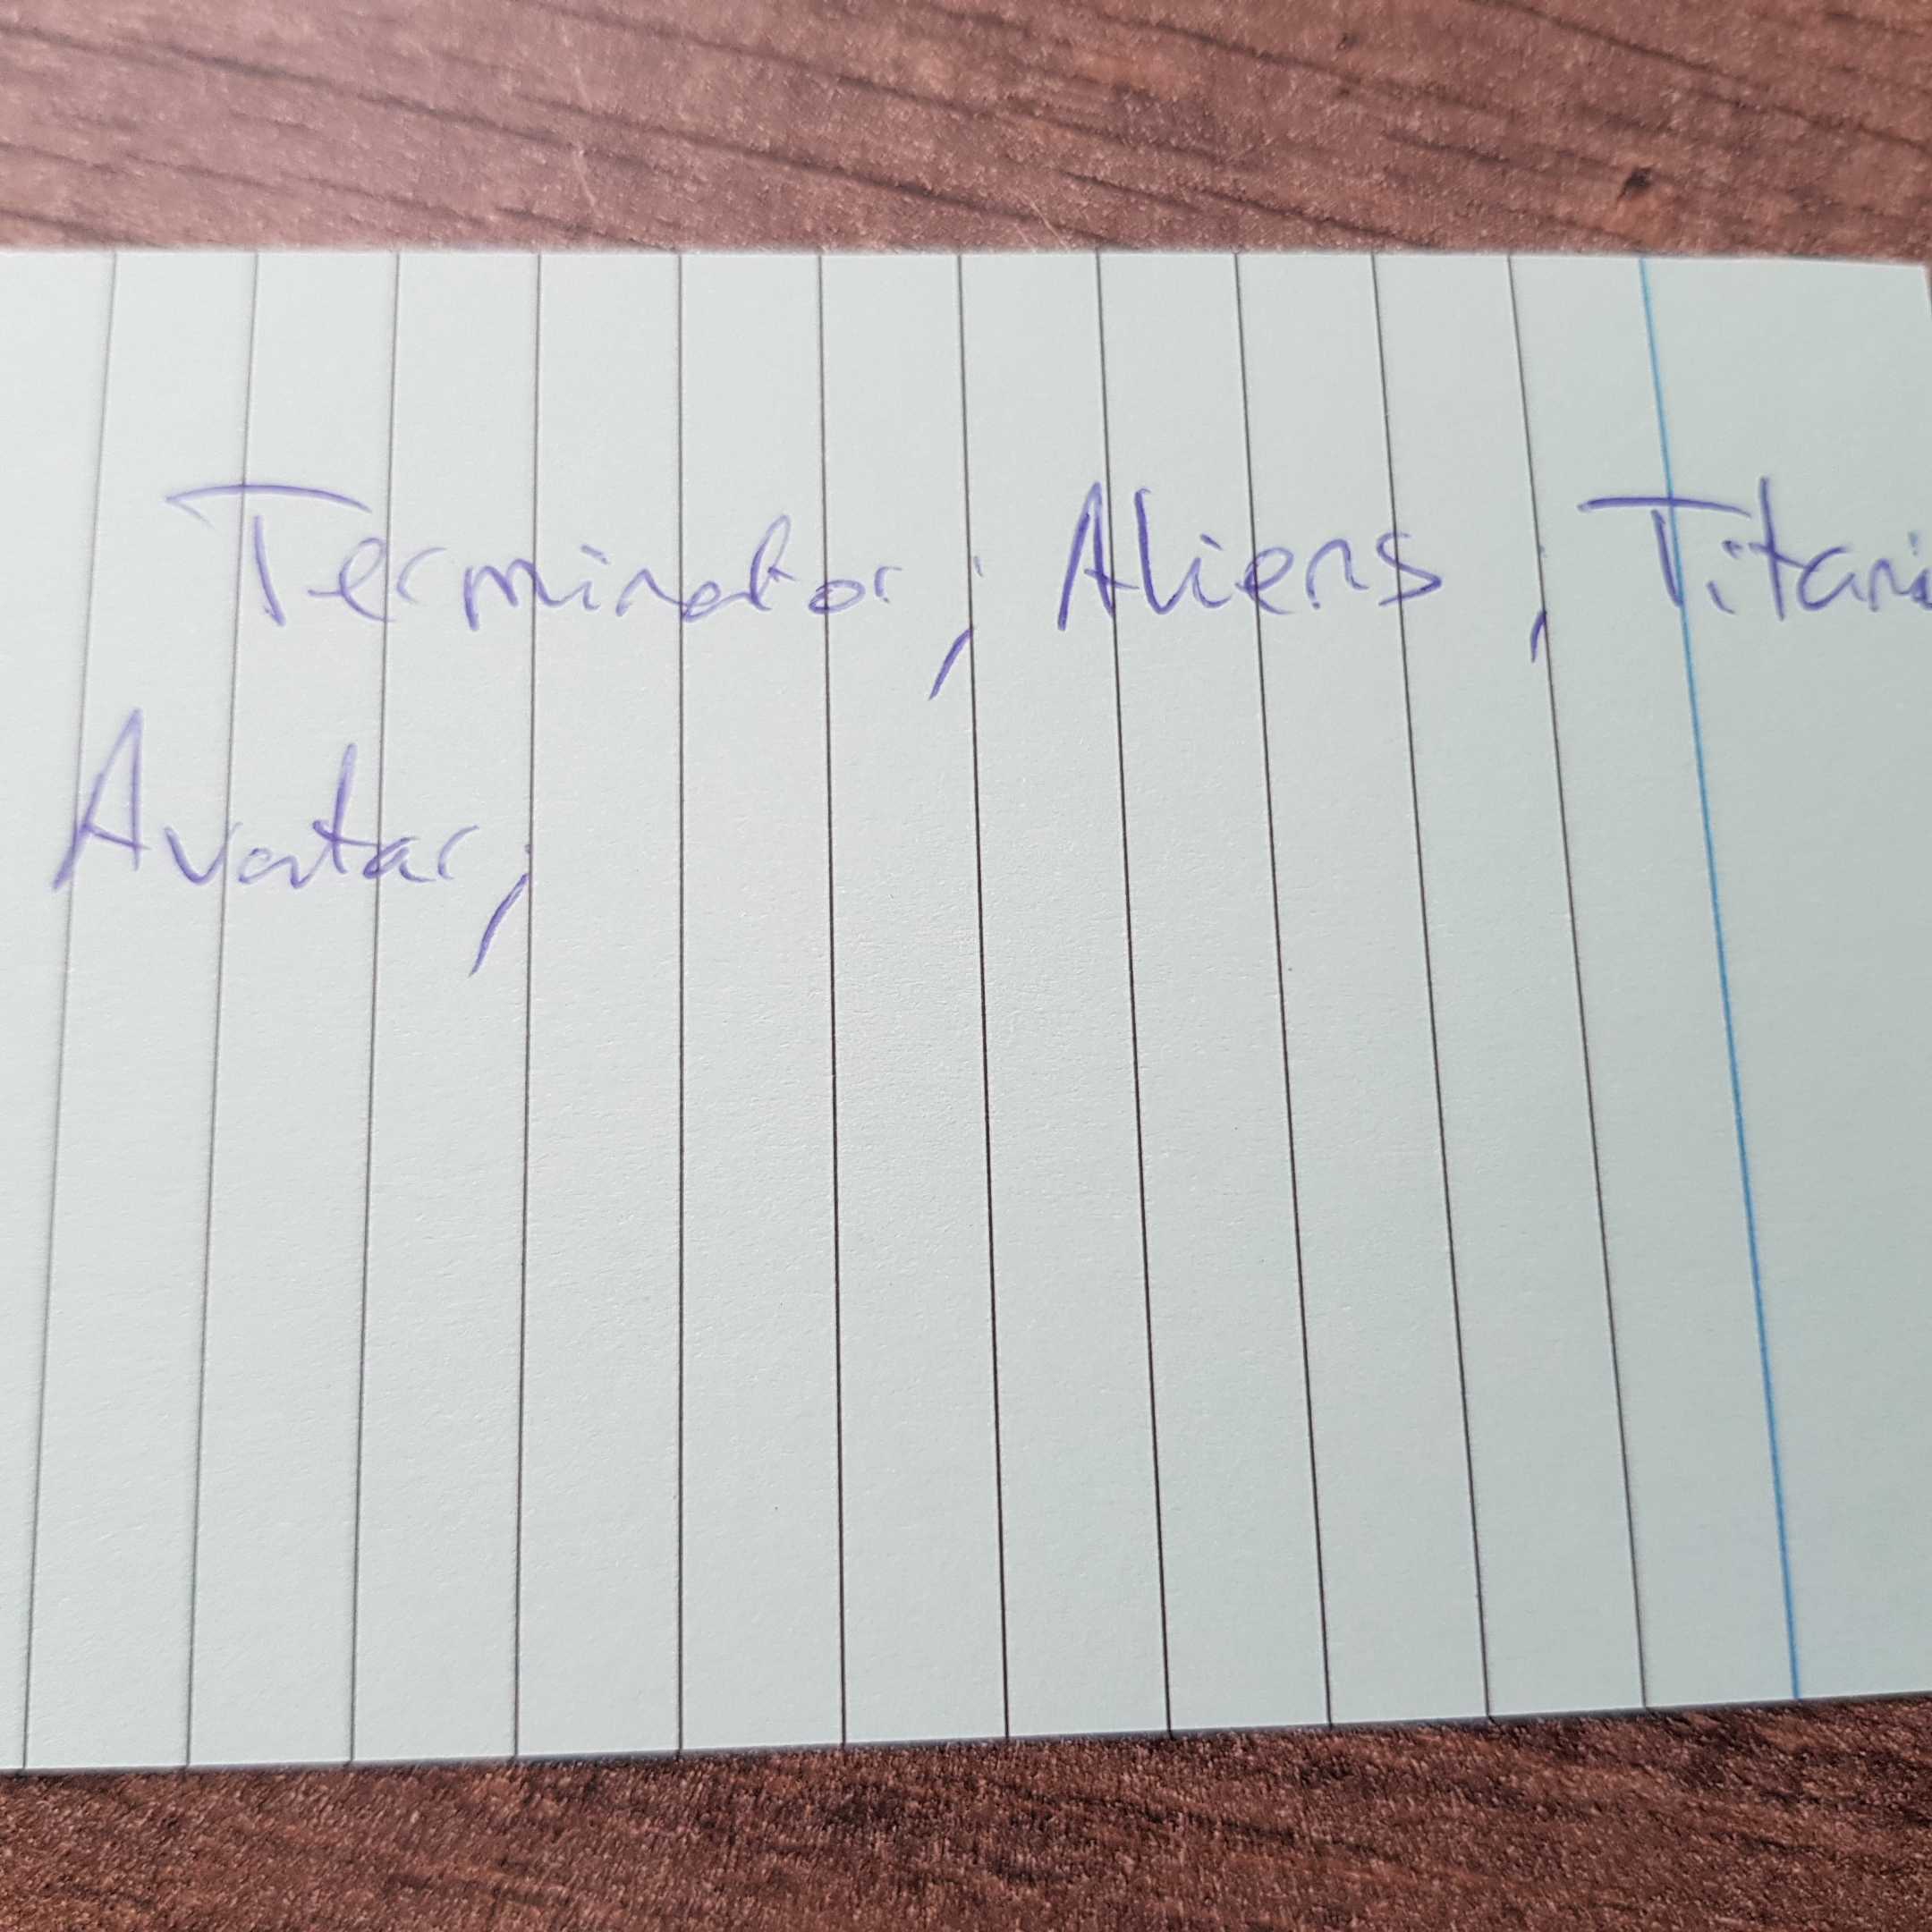 Terminator, Aliens, Titani
Avatar,